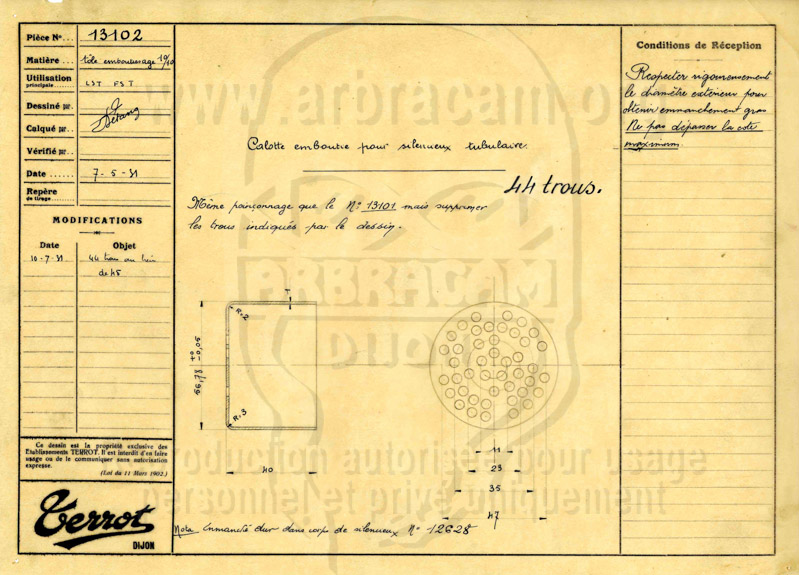 Pièce No... 13102
Matière... tôle emboutissage 10/10
Utilisation principale LST FST
Dessiné par.
Calqué par..
Vérifié par..
Date...... 7-5-31
Repère de tirage
MODIFICATIONS
Date Objet
10-7-31 44 trous au lieu
de 45
Ce dessin est la propriété exclusive des
Etablissements TERROT. Il est interdit d'en faire
usage ou de le communiquer sans autorisation
expresse.
(Loi du 11 Mars 1902.)
Terrot
DIJON
www.arbracam.org
Calotte emboutie pour silencieux tubulaire.
44 trous.
Même poinçonnage que le No 13101 mais supprimer
les trous indiqués par le dessin.
ARBRACAM
DIJON
R=2
R=3
66,78 +0 -0,06
40
11
23
35
47
Reproduction autorisée pour usage
personnel et privé uniquement
Nota Emmanché dur dans corps de silencieux No 12628
Conditions de Réception
Respecter rigoureusement
le diamètre extérieur pour
obtenir emmanchement gras
Ne pas dépasser la cote
maximum.